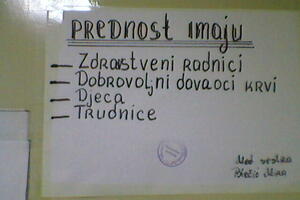 PREDNOST IMAJU
— ZDRAVSTVENI RADNICI
— DOBROVOLJNI DAVAOCI KRVI
— DJECA
— TRUDNICE
Med sestra